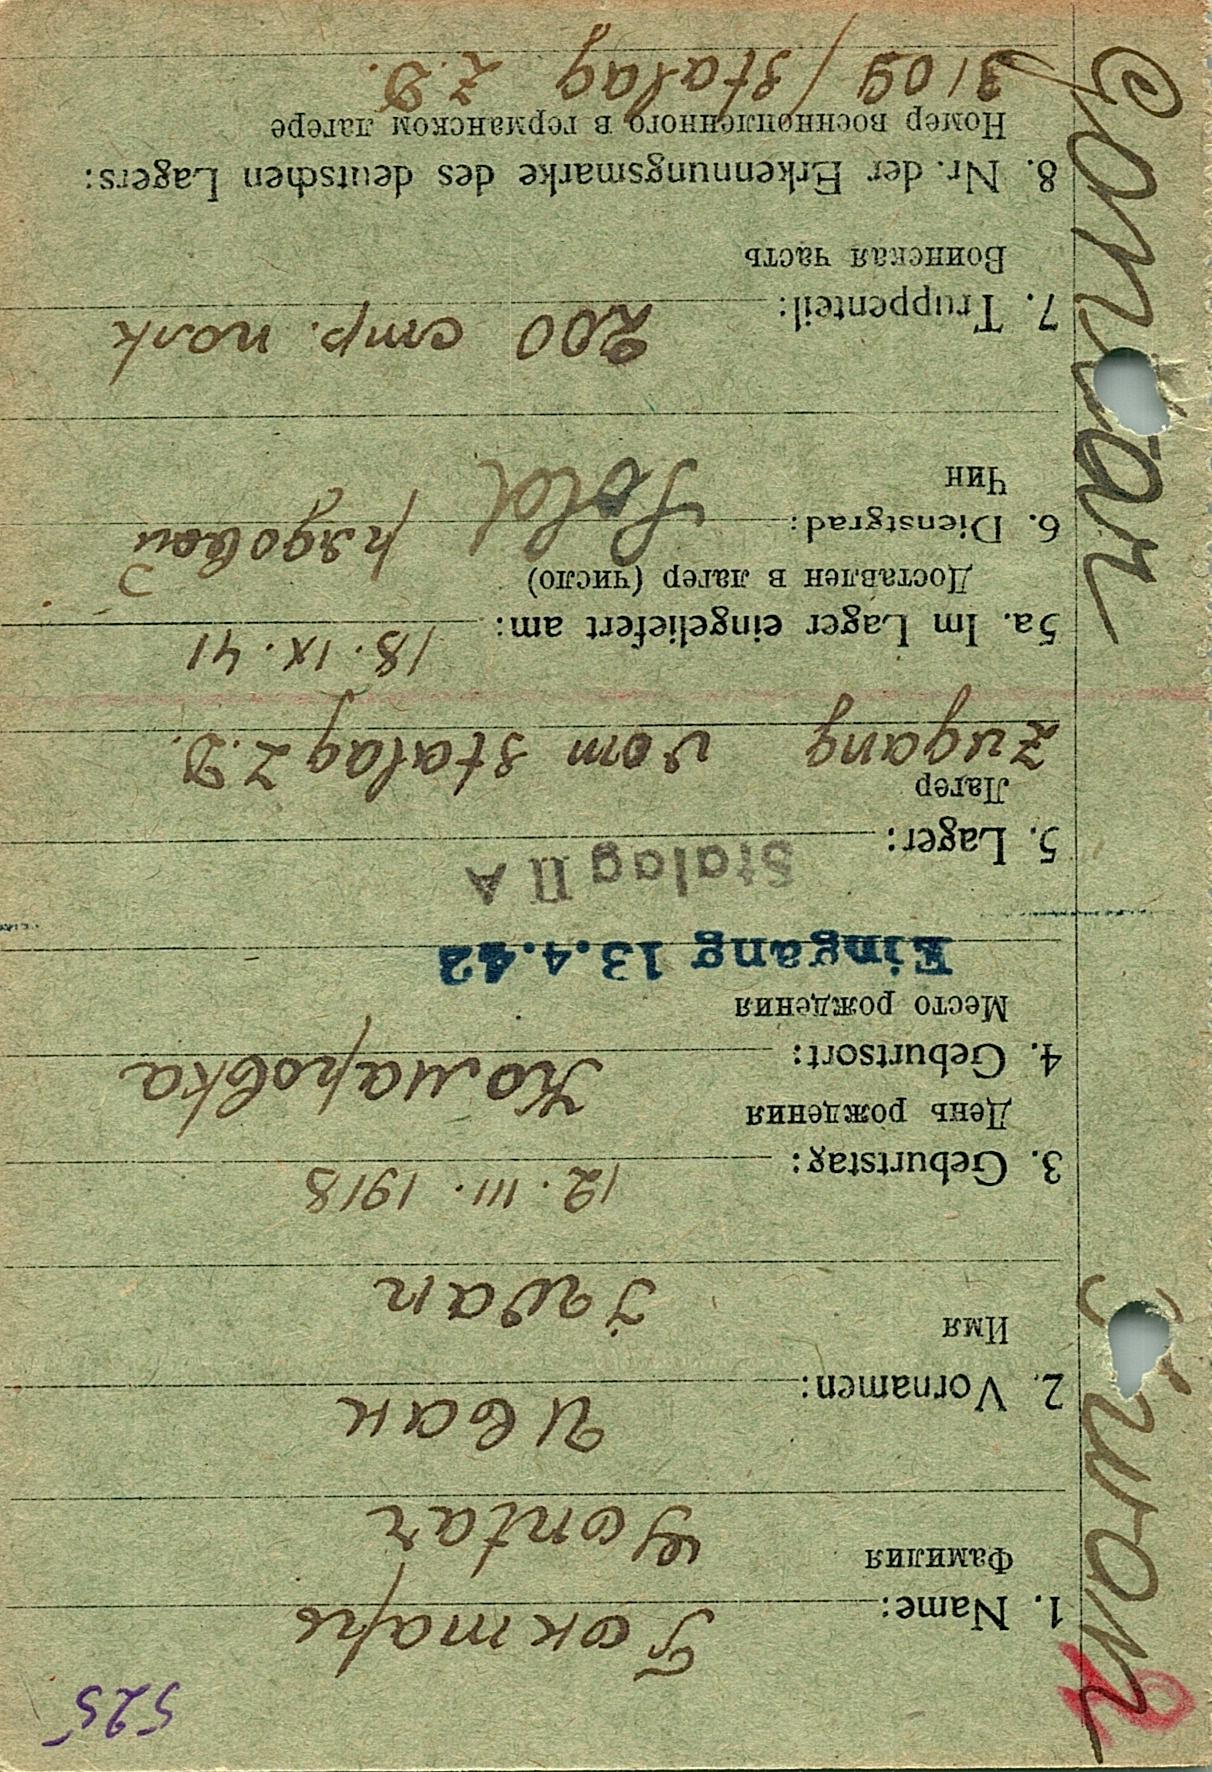 525
1. Name: Гонтарь
Фамилия
Gontar
Иван
2. Vornamen:
Имя
Iwan
12. III. 1918
3. Geburtstag:
День рождения
Комаровка
4. Geburtsort:
Место рождения
Eingang 13.4.42
Stalag II A
5. Lager:
Лагер
Zugang vom Stalag Z.D.
18. IX. 41
5a. Im Lager eingeliefert am:
Доставлен в лагер (число)
6. Dienstgrad: Sold рядовой
Чин
200 стр. полк
7. Truppenteil:
Воинская часть
8. Nr. der Erkennungsmarke des deutschen Lagers:
Номер военнопленного в германском лагере
3109 / Stalag Z.D.
Gontar Iwan